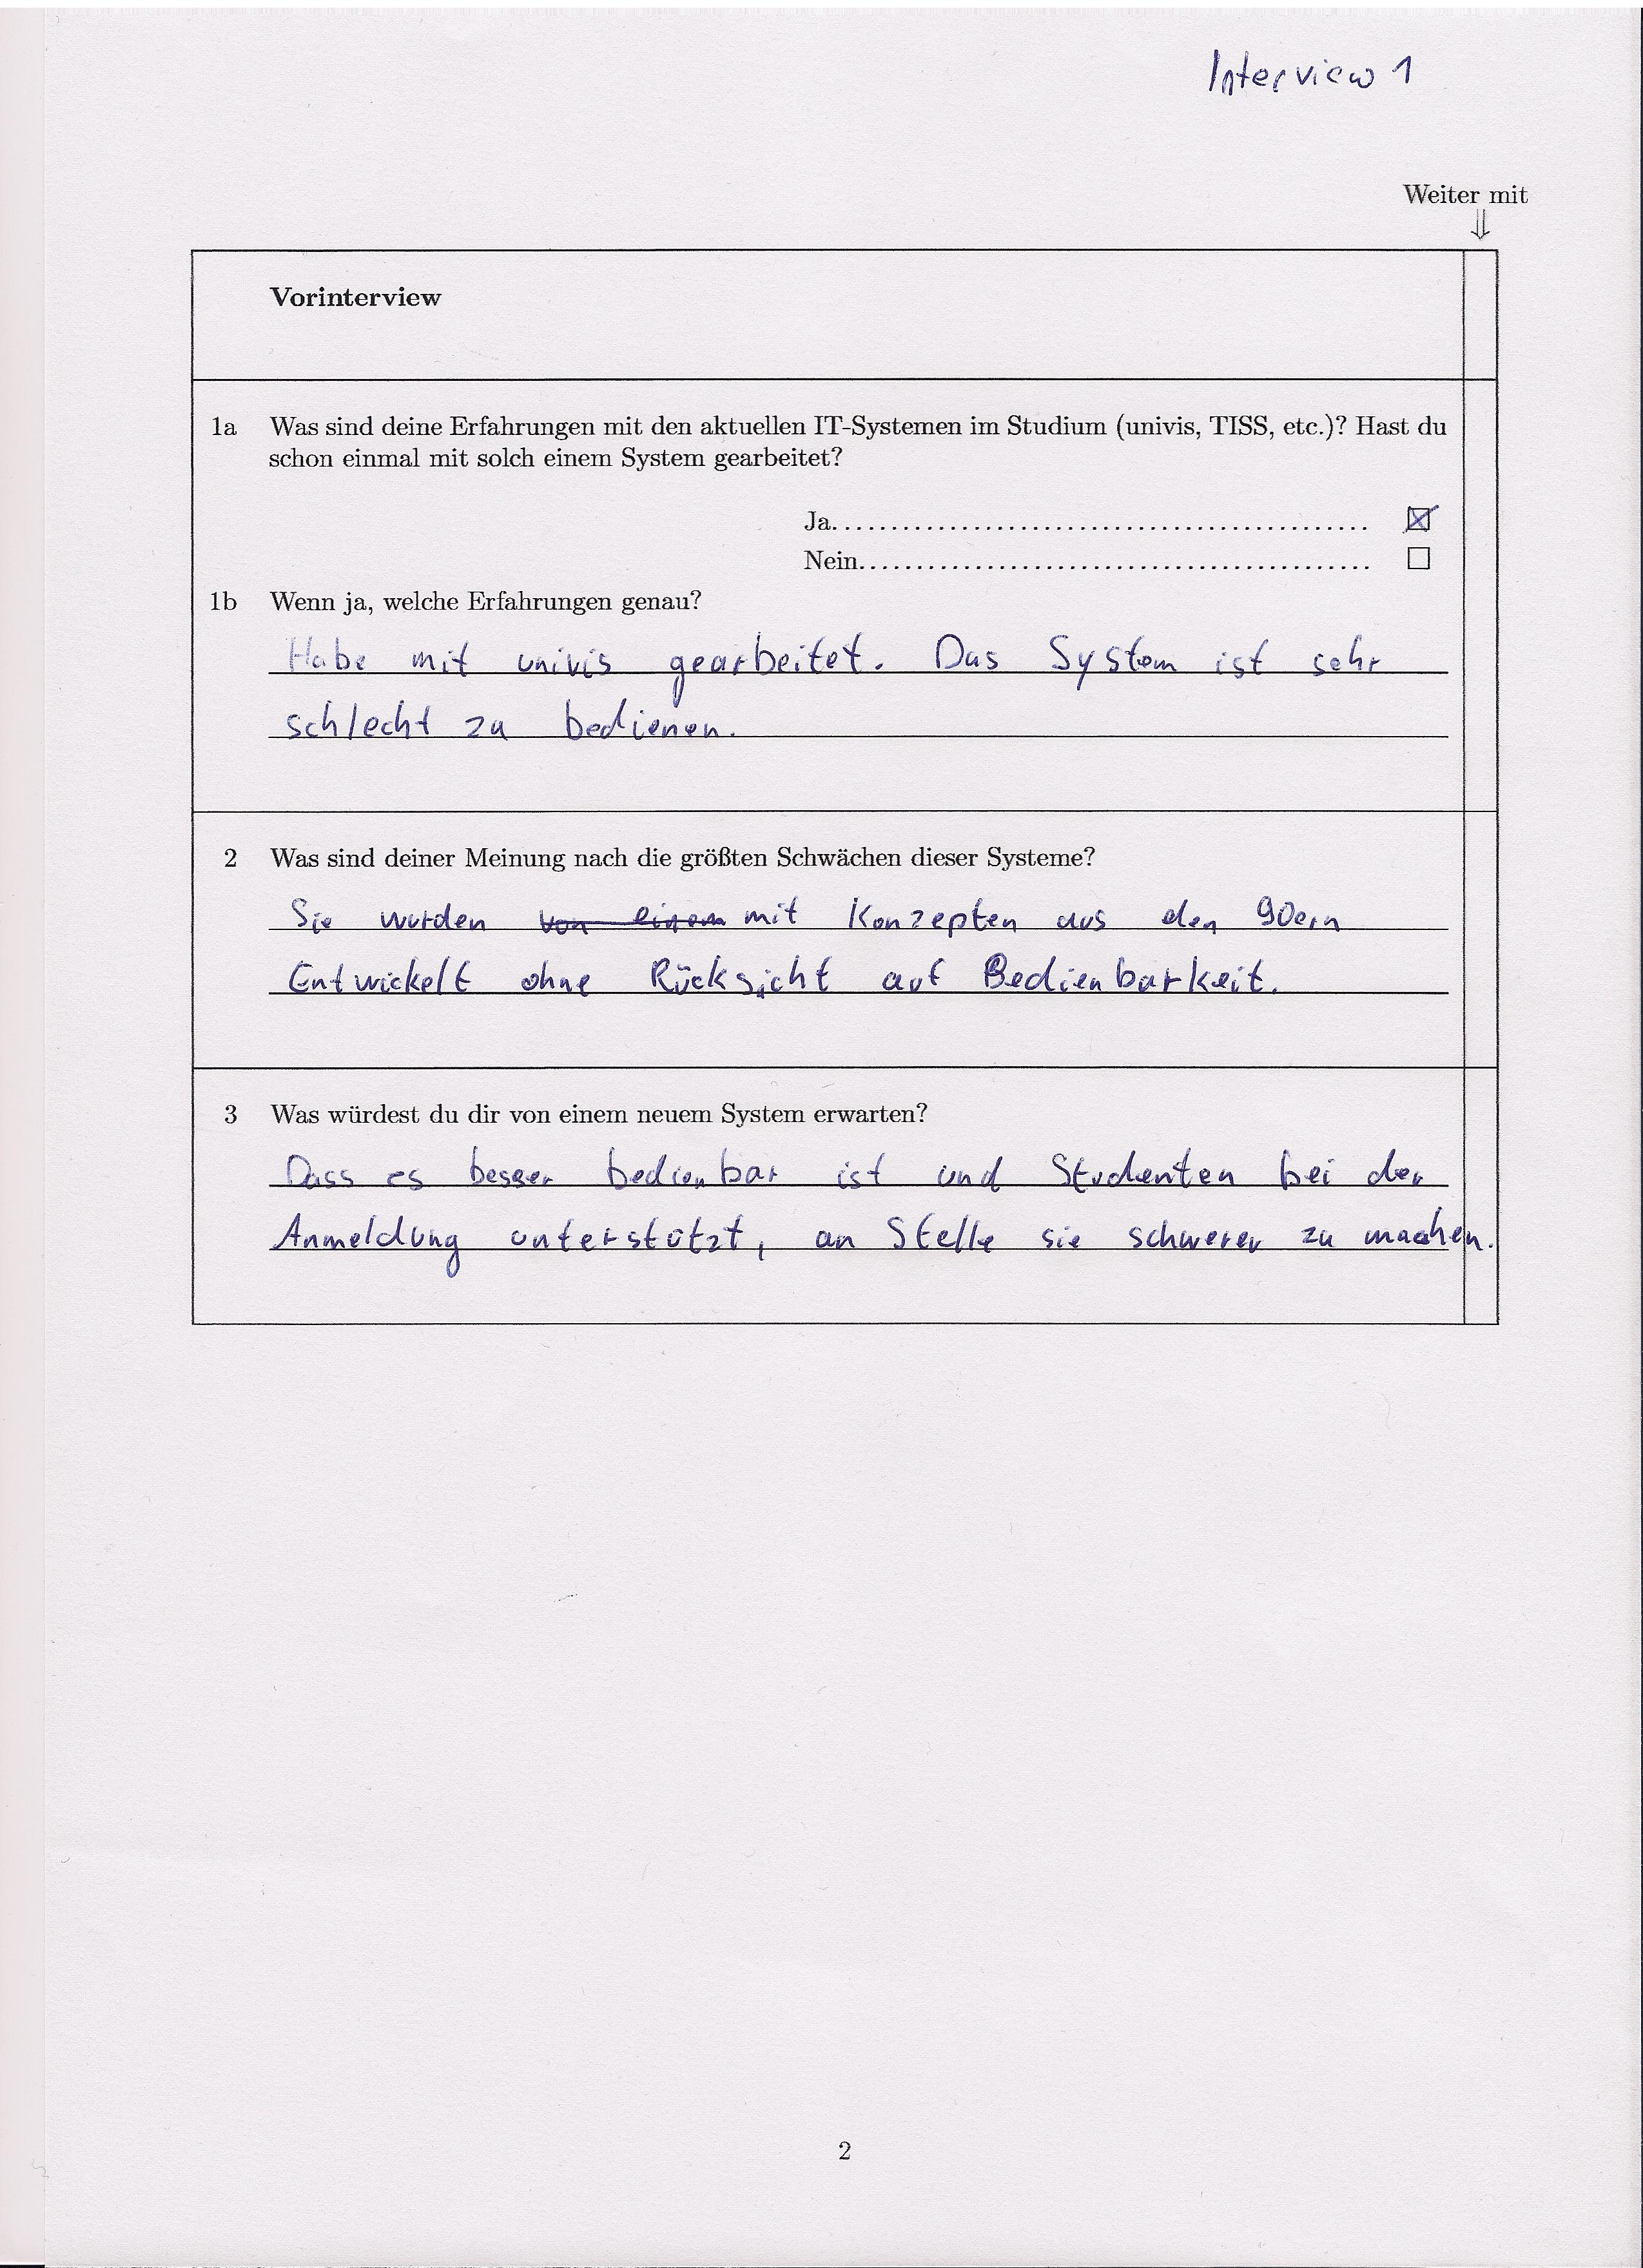 Interview 1
Weiter mit
⇓
Vorinterview
1a Was sind deine Erfahrungen mit den aktuellen IT-Systemen im Studium (univis, TISS, etc.)? Hast du
schon einmal mit solch einem System gearbeitet?
Ja.............................................. ☒
Nein............................................ ☐
1b Wenn ja, welche Erfahrungen genau?
Habe mit univis gearbeitet. Das System ist sehr
schlecht zu bedienen.
2 Was sind deiner Meinung nach die größten Schwächen dieser Systeme?
Sie wurden ~~von einem~~ mit Konzepten aus den 90ern
Entwickelt ohne Rücksicht auf Bedienbarkeit.
3 Was würdest du dir von einem neuem System erwarten?
Dass es besser bedienbar ist und Studenten bei der
Anmeldung unterstützt, an Stelle sie schwerer zu machen.
2